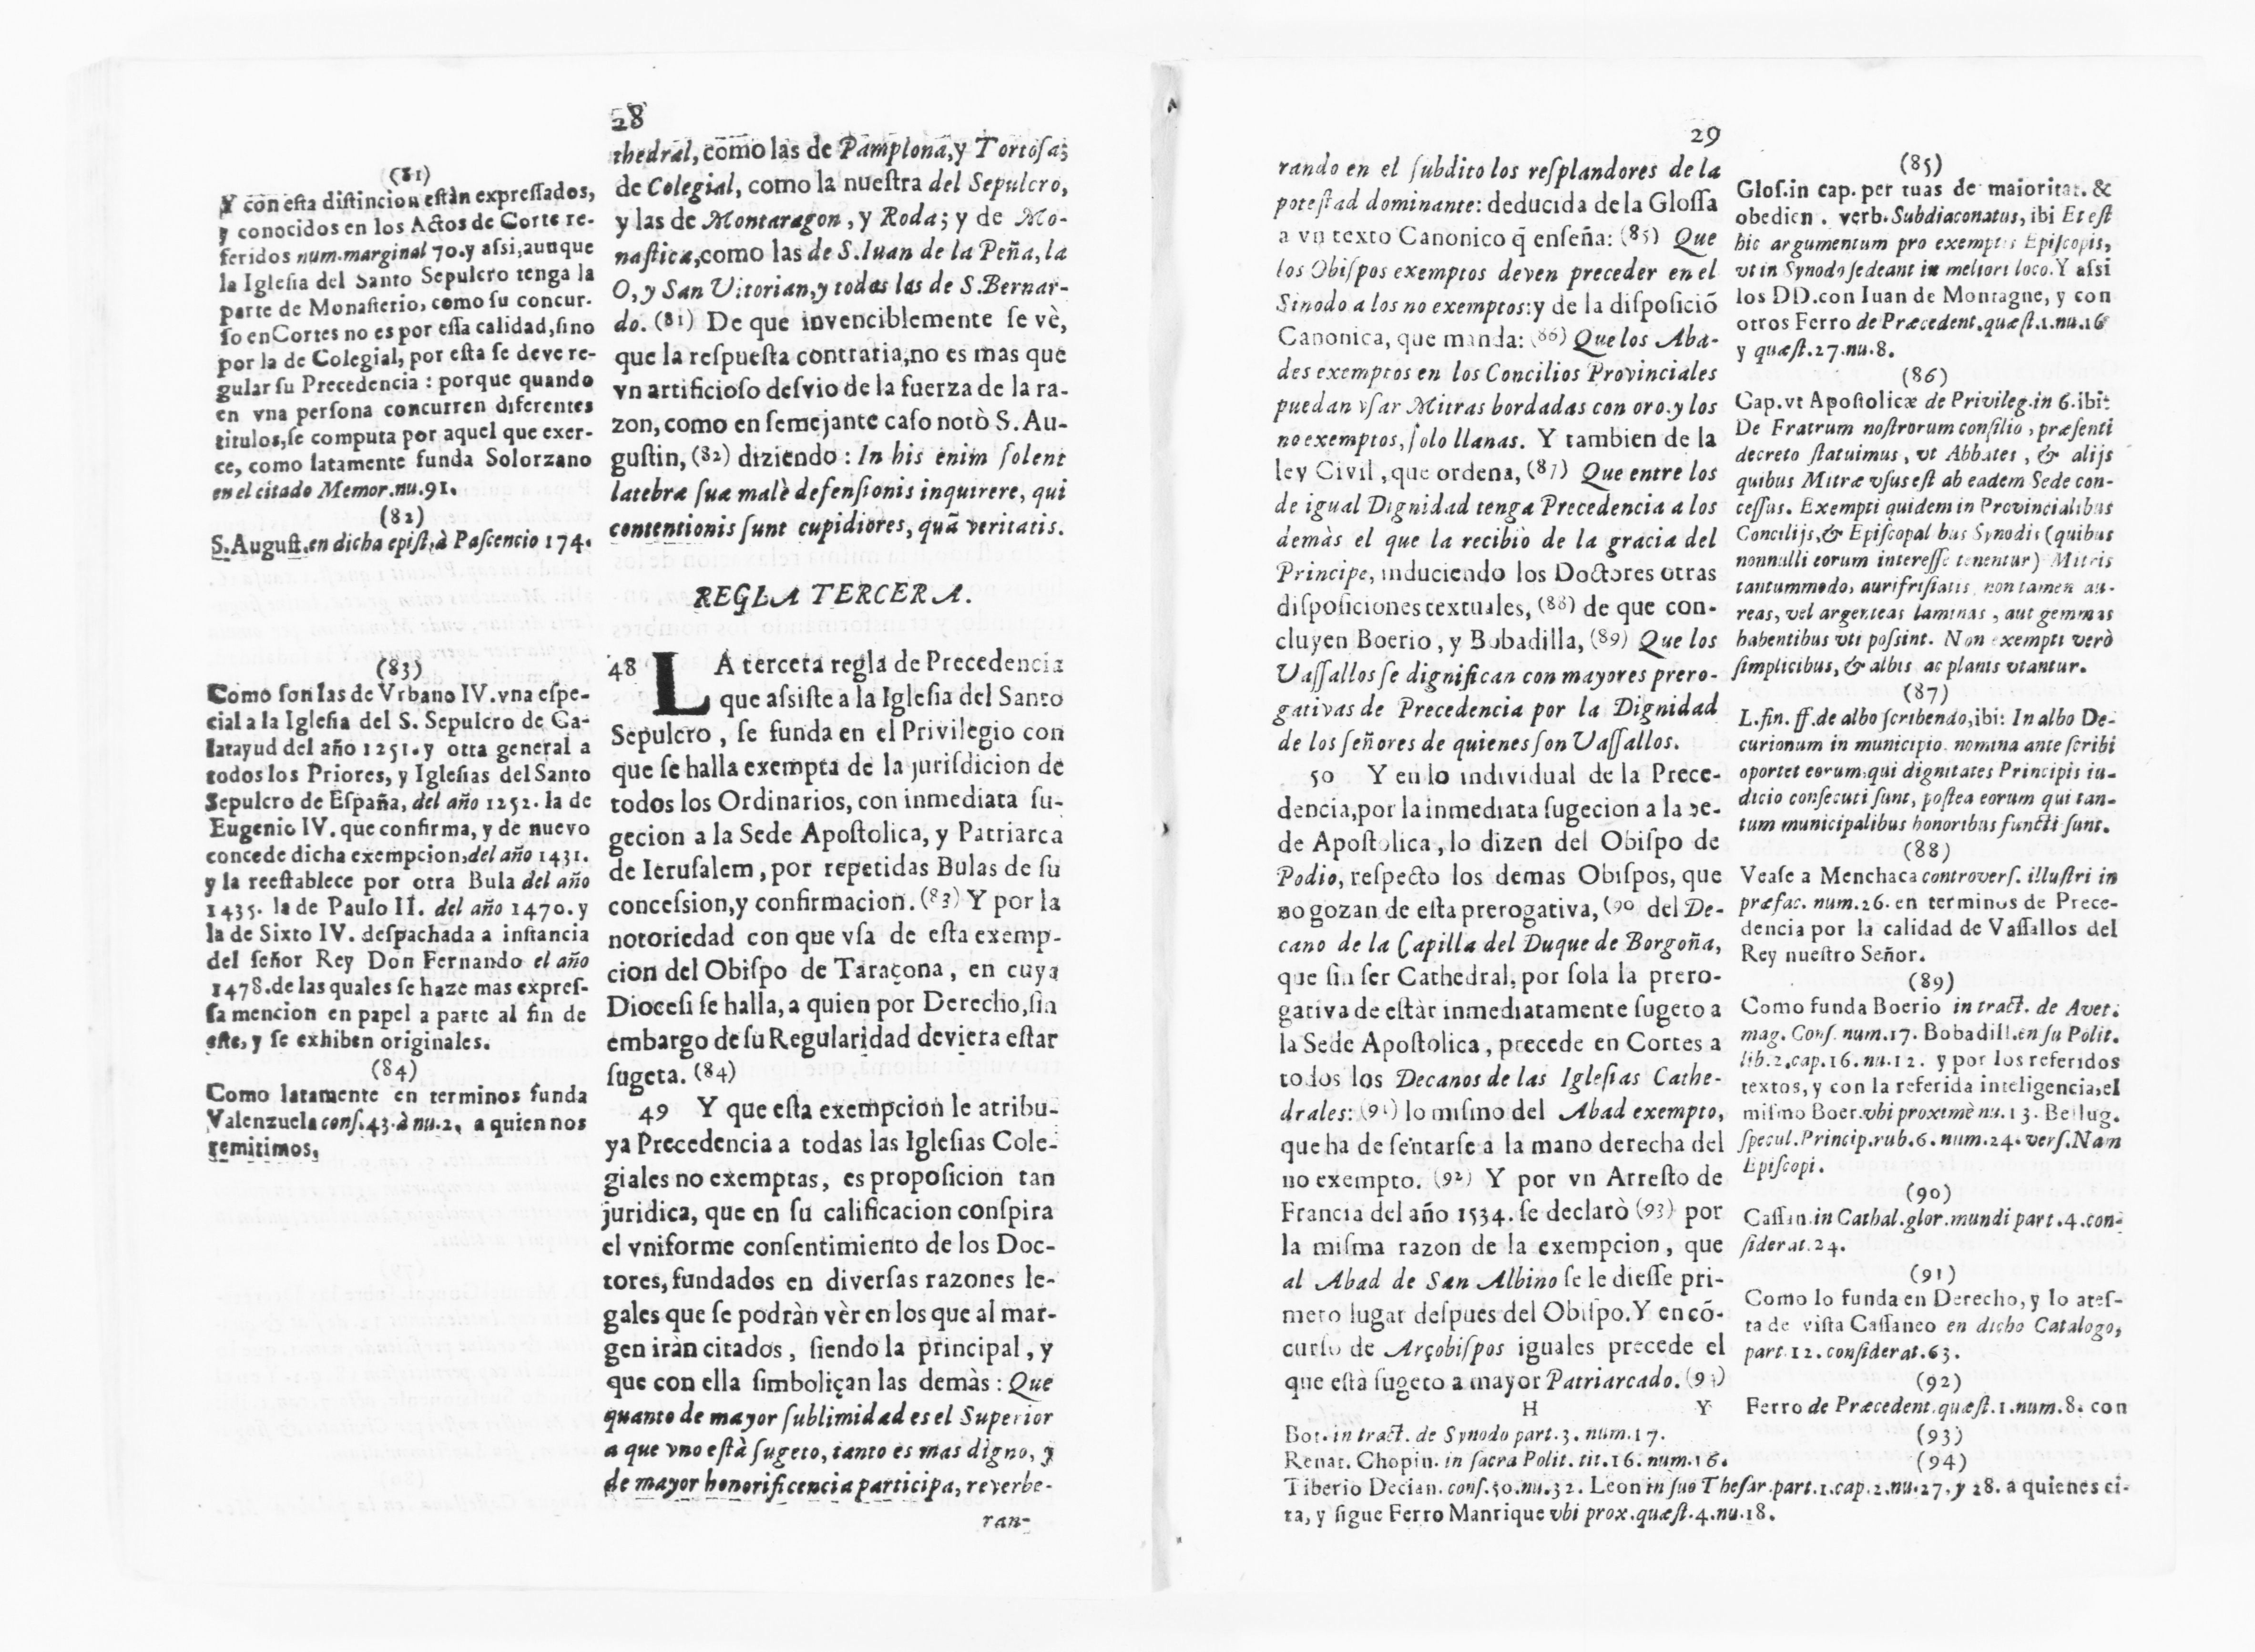 28
(81)
Y con esta distincion estàn expressados,
y conocidos en los Actos de Corte re-
feridos num.marginal 70.y assi,aunque
la Iglesia del Santo Sepulcro tenga la
parte de Monasterio, como su concur-
so en Cortes no es por essa calidad,sino
por la de Colegial, por esta se deve re-
gular su Precedencia : porque quando
en vna persona concurren diferentes
titulos,se computa por aquel que exer-
ce, como latamente funda Solorzano
en el citado Memor.nu.91.
(82)
S.August.en dicha epist.à Pascencio 174.
(83)
Como son las de Vrbano IV.vna espe-
cial a la Iglesia del S. Sepulcro de Ca-
latayud del año 1251.y otra general a
todos los Priores, y Iglesias del Santo
Sepulcro de España, del año 1252. la de
Eugenio IV. que confirma, y de nuevo
concede dicha exempcion,del año 1431.
y la reestablece por otra Bula del año
1435. la de Paulo II. del año 1470. y
la de Sixto IV. despachada a instancia
del señor Rey Don Fernando el año
1478.de las quales se haze mas expres-
sa mencion en papel a parte al fin de
este, y se exhiben originales.
(84)
Como latamente en terminos funda
Valenzuela cons.43.à nu.2. a quien nos
remitimos.
thedral, como las de Pamplona,y Tortosa;
de Colegial, como la nuestra del Sepulcro,
y las de Montaragon, y Roda; y de Mo-
nastica,como las de S.Iuan de la Peña, la
O, y San Vitorian,y todas las de S.Bernar-
do. (81) De que invenciblemente se vè,
que la respuesta contraria,no es mas que
vn artificioso desvio de la fuerza de la ra-
zon, como en semejante caso notò S. Au-
gustin, (82) diziendo : In his enim solent
latebræ suæ malè defensionis inquirere, qui
contentionis sunt cupidiores, quã veritatis.
REGLA TERCERA.
48 LA tercera regla de Precedencia
que assiste a la Iglesia del Santo
Sepulcro , se funda en el Privilegio con
que se halla exempta de la jurisdicion de
todos los Ordinarios, con inmediata su-
gecion a la Sede Apostolica, y Patriarca
de Ierusalem , por repetidas Bulas de su
concession,y confirmacion. (83) Y por la
notoriedad con que vsa de esta exemp-
cion del Obispo de Taraçona , en cuya
Diocesi se halla, a quien por Derecho,sin
embargo de su Regularidad deviera estar
sugeta. (84)
49 Y que esta exempcion le atribu-
ya Precedencia a todas las Iglesias Cole-
giales no exemptas, es proposicion tan
juridica, que en su calificacion conspira
el vniforme consentimiento de los Doc-
tores, fundados en diversas razones le-
gales que se podràn vèr en los que al mar-
gen iràn citados , siendo la principal , y
que con ella simboliçan las demàs : Que
quanto de mayor sublimidad es el Superior
a que vno està sugeto, tanto es mas digno, y
de mayor honorificencia participa, reverbe-
ran-
29
rando en el subdito los resplandores de la
potestad dominante: deducida de la Glossa
a vn texto Canonico q̃ enseña: (85) Que
los Obispos exemptos deven preceder en el
Sinodo a los no exemptos:y de la disposiciõ
Canonica, que manda: (86) Que los Aba-
des exemptos en los Concilios Provinciales
puedan vsar Mitras bordadas con oro.y los
no exemptos, solo llanas. Y tambien de la
ley Civil , que ordena, (87) Que entre los
de igual Dignidad tenga Precedencia a los
demàs el que la recibiò de la gracia del
Principe, induciendo los Doctores otras
disposiciones textuales, (88) de que con-
cluyen Boerio , y Bobadilla, (89) Que los
Vassallos se dignifican con mayores prero-
gativas de Precedencia por la Dignidad
de los señores de quienes son Vassallos.
50 Y en lo individual de la Prece-
dencia,por la inmediata sugecion a la Se-
de Apostolica , lo dizen del Obispo de
Podio, respecto los demas Obispos, que
no gozan de esta prerogativa, (90 del De-
cano de la Capilla del Duque de Borgoña,
que sin ser Cathedral, por sola la prero-
gativa de estàr inmediatamente sugeto a
la Sede Apostolica , precede en Cortes a
todos los Decanos de las Iglesias Cathe-
drales: (91) lo mismo del Abad exempto,
que ha de sentarse a la mano derecha del
no exempto. (92) Y por vn Arresto de
Francia del año 1534. se declarò (93) por
la misma razon de la exempcion , que
al Abad de San Albino se le diesse pri-
mero lugar despues del Obispo. Y en cõ-
curso de Arçobispos iguales precede el
que està sugeto a mayor Patriarcado. (94)
H Y
(85)
Glos.in cap. per tuas de maioritat. &
obedien . verb. Subdiaconatus, ibi Et est
hic argumentum pro exemptis Episcopis,
vt in Synodo sedeant in meliori loco.Y assi
los DD.con Iuan de Montagne, y con
otros Ferro de Præcedent.quæst.1.nu.16
y quæst.27.nu.8.
(86)
Cap.vt Apostolicæ de Privileg.in 6.ibi:
De Fratrum nostrorum consilio , præsenti
decreto statuimus , vt Abbates , & alijs
quibus Mitræ vsus est ab eadem Sede con-
cessus. Exempti quidem in Provincialibus
Concilijs,& Episcopalibus Synodis (quibus
nonnulli eorum interesse tenentur) Mitris
tantummodo, aurifrisiatis non tamen au-
reas, vel argenteas laminas , aut gemmas
habentibus vti possint. Non exempti verò
simplicibus, & albis ac planis vtantur.
(87)
L.fin. ff.de albo scribendo,ibi: In albo De-
curionum in municipio nomina ante scribi
oportet eorum,qui dignitates Principis iu-
dicio consecuti sunt, postea eorum qui tan-
tum municipalibus honoribus functi sunt.
(88)
Vease a Menchaca controvers. illustri in
præfac. num.26. en terminos de Prece-
dencia por la calidad de Vassallos del
Rey nuestro Señor.
(89)
Como funda Boerio in tract. de Auct.
mag. Cons. num.17. Bobadill.en su Polit.
lib.2.cap.16.nu.12. y por los referidos
textos, y con la referida inteligencia,el
mismo Boer.vbi proximè nu.13. Bellug.
specul.Princip.rub.6.num.24.vers.Nam
Episcopi.
(90)
Cassan.in Cathal.glor.mundi part.4.con-
siderat.24.
(91)
Como lo funda en Derecho, y lo ates-
ta de vista Cassaneo en dicho Catalogo,
part.12.considerat.63.
(92)
Ferro de Præcedent.quæst.1.num.8. con
Bot. in tract. de Synodo part.3. num.17.
(93)
Renat. Chopin. in sacra Polit. tit.16. num.16.
(94)
Tiberio Decian. cons.50.nu.32. Leon in suo Thesar.part.1.cap.2.nu.27.y 28. a quienes ci-
ta, y sigue Ferro Manrique vbi prox.quæst.4.nu.18.